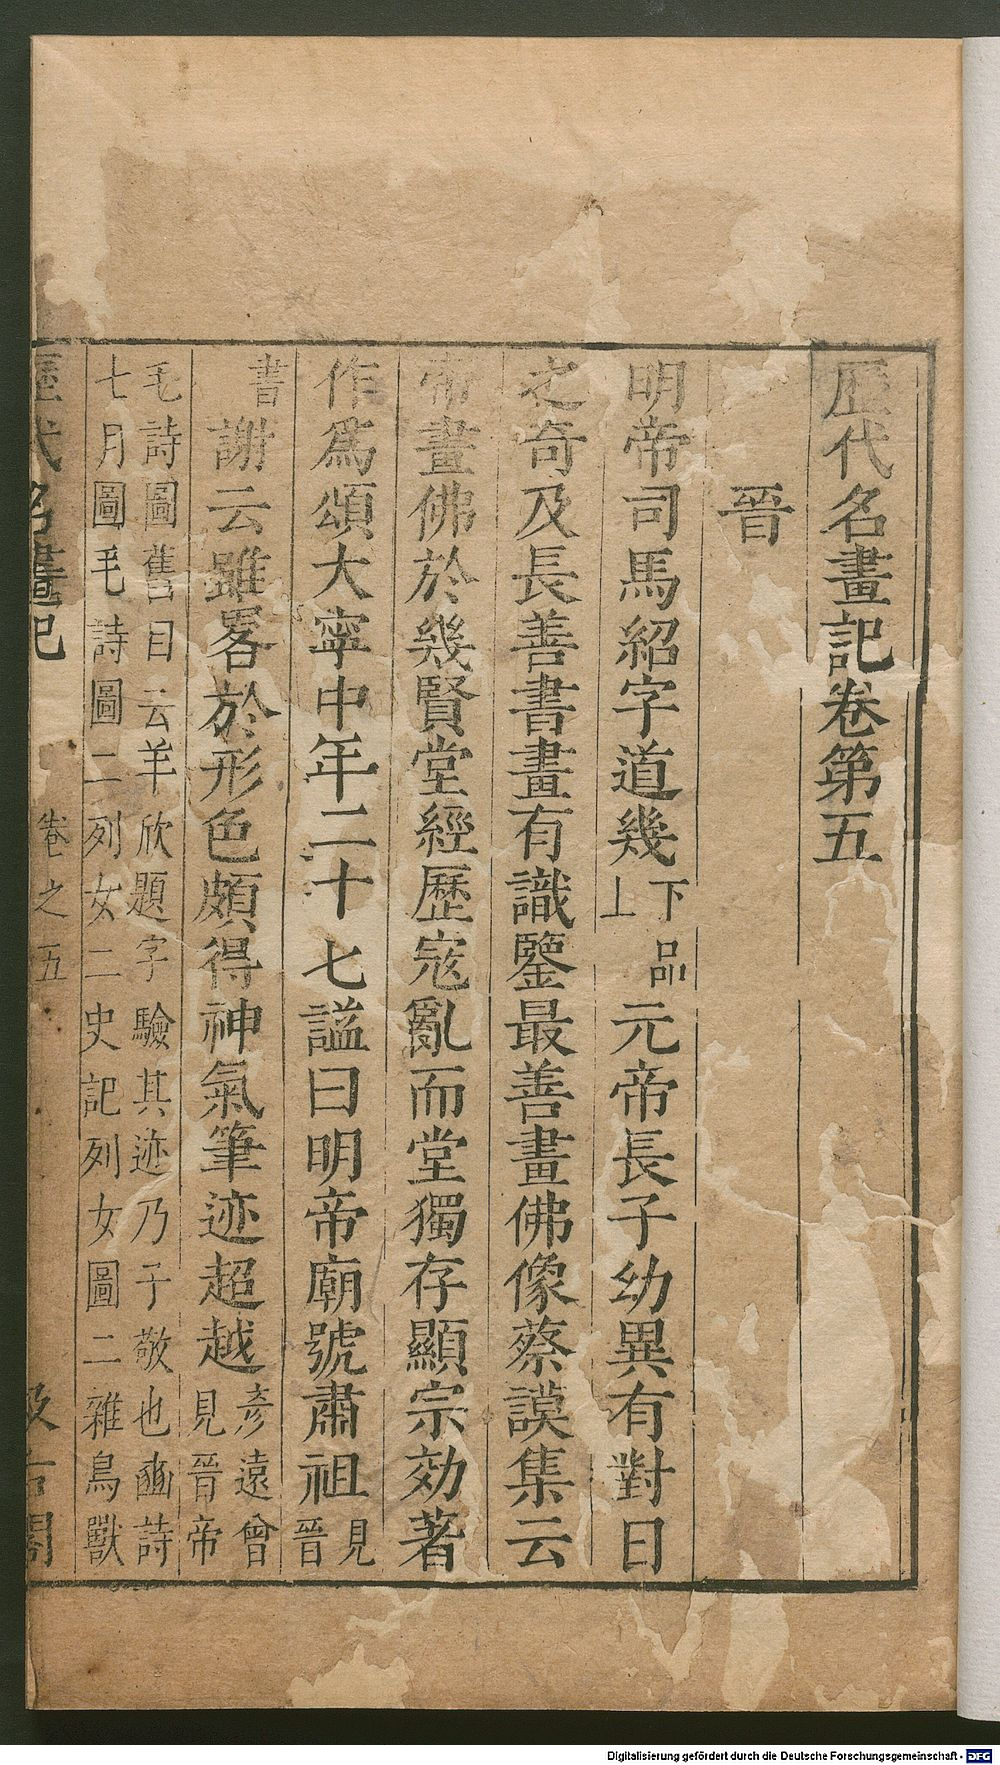 歷代名畫記卷第五
晉
明帝司馬紹字道幾下品上元帝長子幼異有對日
之奇及長善書畫有識鑒最善畫佛像蔡謨集云
帝畫佛於幾賢堂經歷寇亂而堂獨存顯宗効著
作爲頌大寧中年二十七謚曰明帝廟號肅祖見晉
書謝云雖畧於形色頗得神氣筆迹超越彥遠曾見晉帝
毛詩圖舊目云羊欣題字驗其迹乃子敬也豳詩
七月圖毛詩圖二列女二史記列女圖二雜鳥獸
歷代名畫記 卷之五 汲古閣
Digitalisierung gefördert durch die Deutsche Forschungsgemeinschaft - DFG